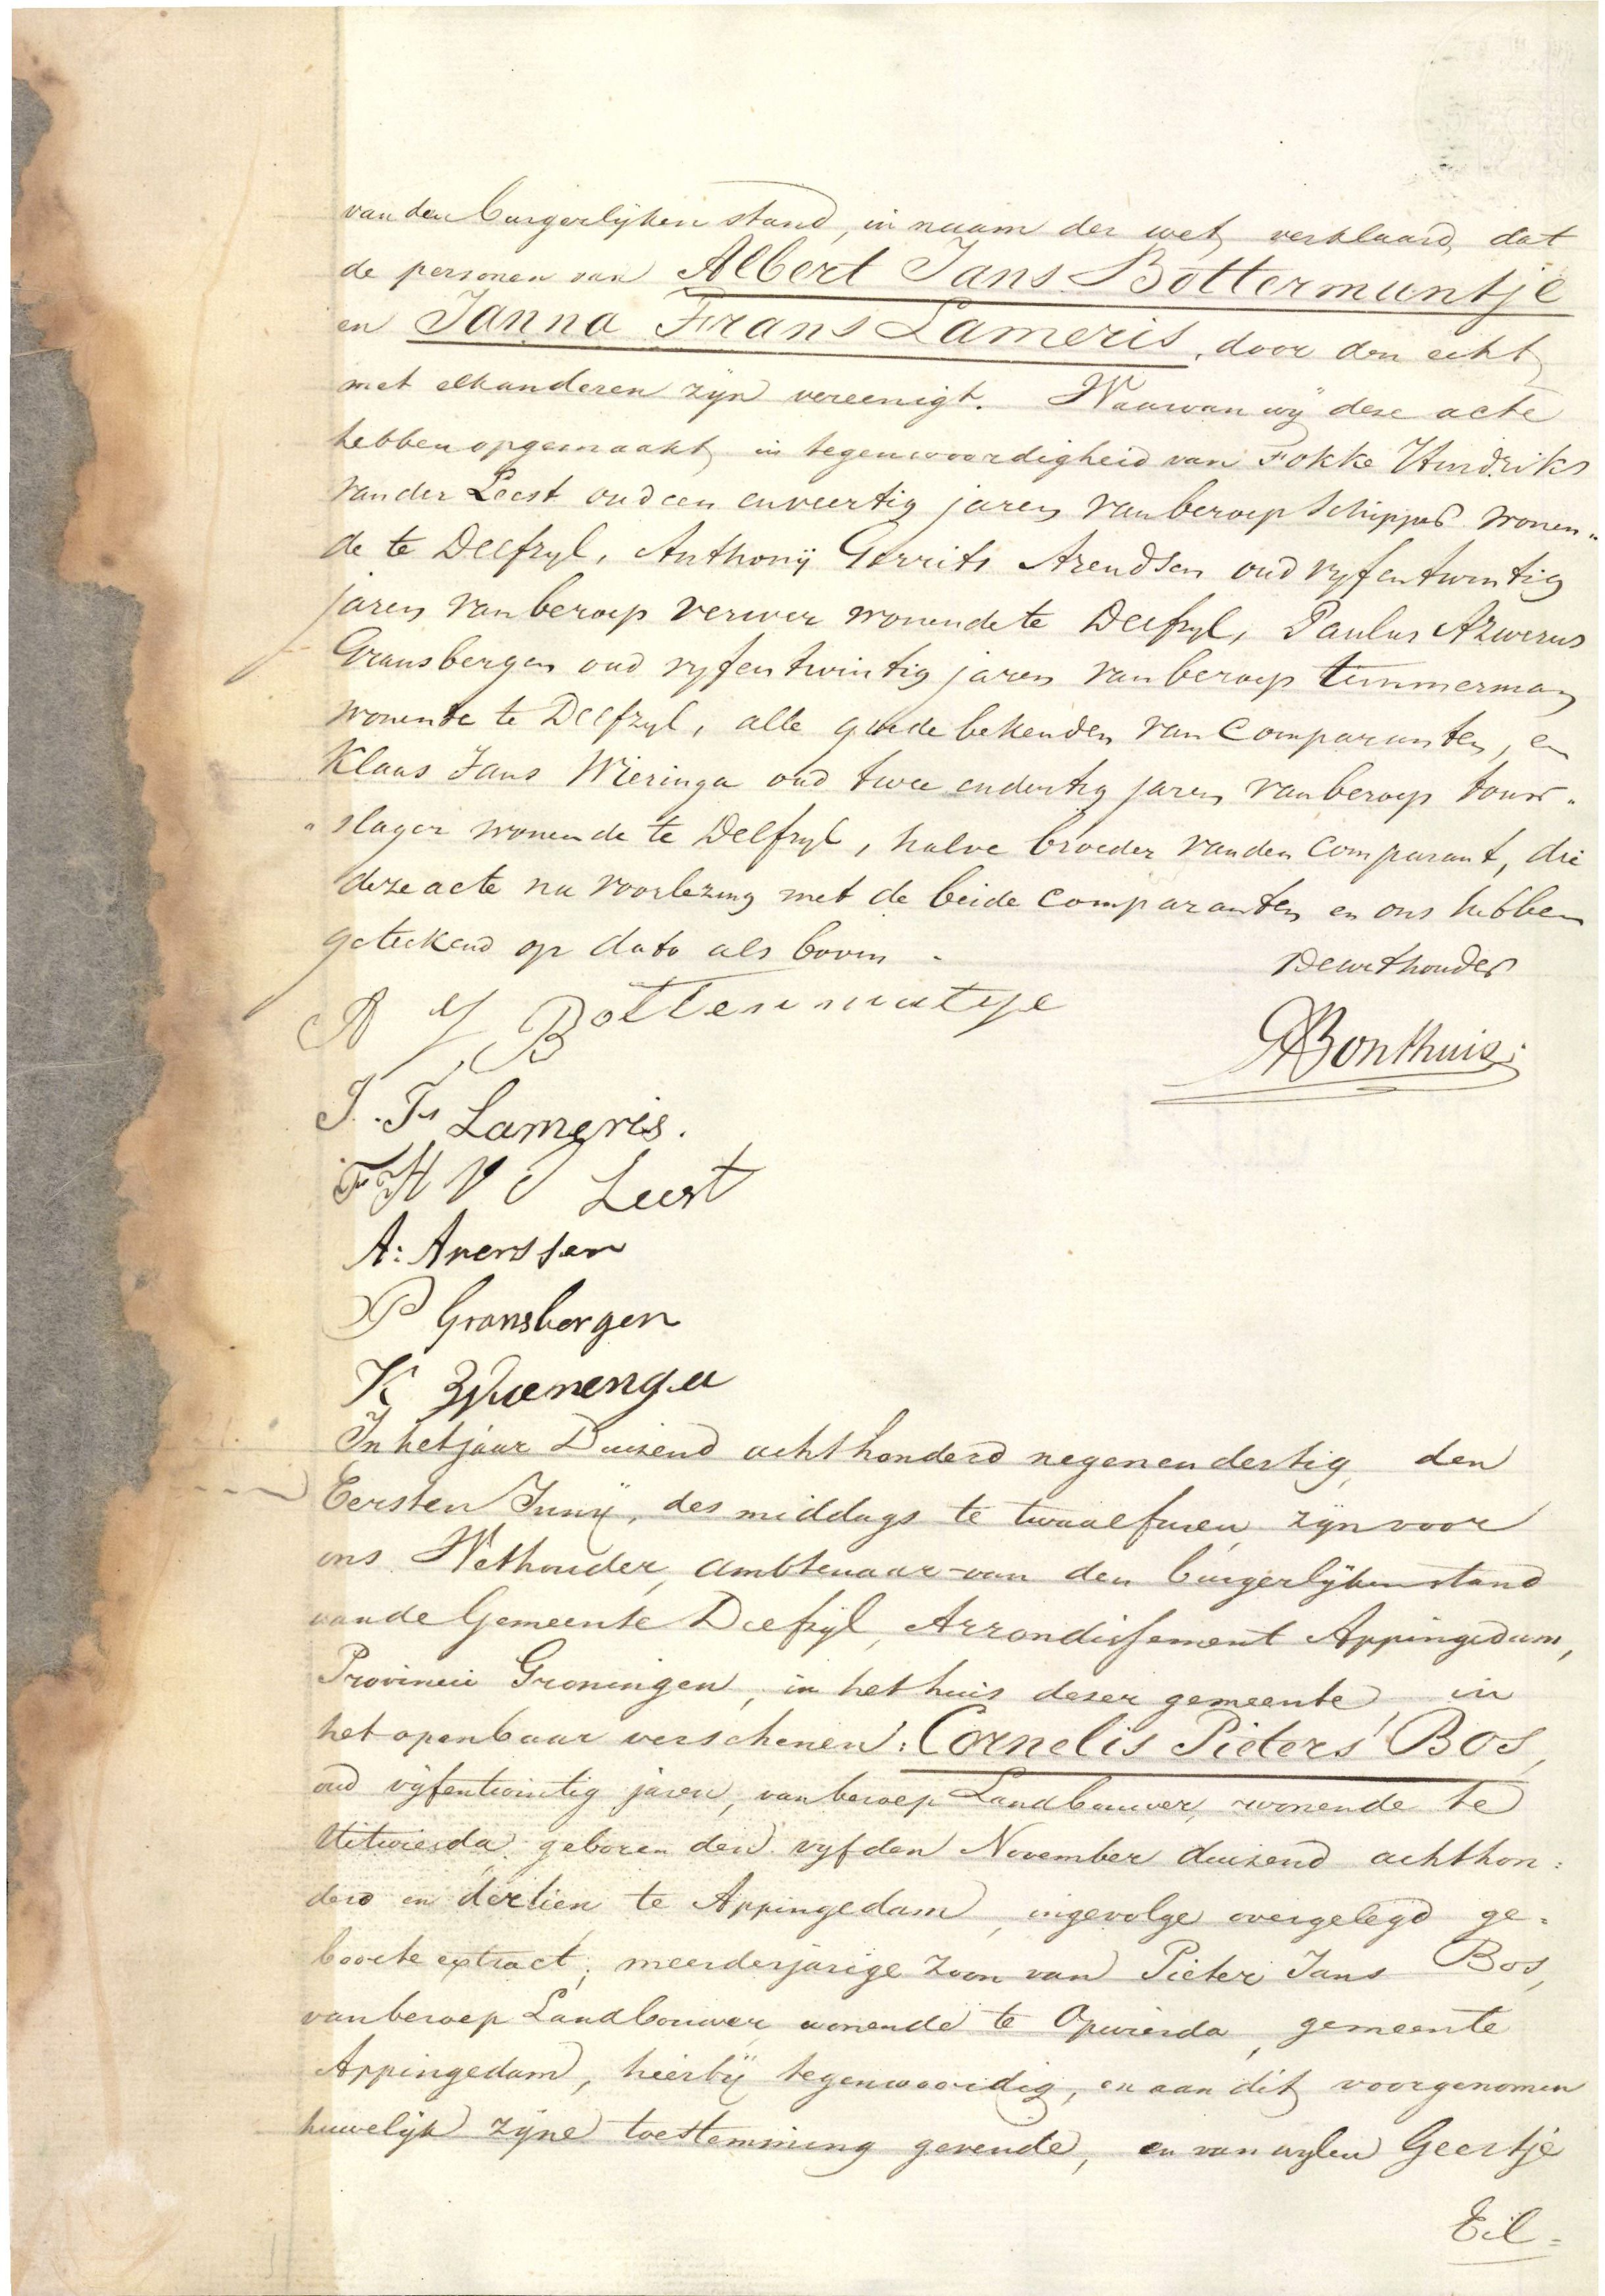 van den burgerlijken stand, in naam der wet, verklaard, dat
de personen van Albert Jans Bottermuntje
en Janna Frans Lameris, door den echt
met elkanderen zijn vereenigt. Waarvan wij deze acte
hebben opgemaakt, in tegenwoordigheid van Fokke Hindriks
van der Leest oud een en veertig jaren van beroep Schipper wonen„
de te Delfzyl, Anthonij Gerrits Arendsen oud vyfentwintig
jaren van beroep verwer wonende te Delfzyl, Paulus Azwerus
Gransbergen oud vyfentwintig jaren van beroep timmerman
wonende te Delfzyl, alle goede bekenden van Comparanten, en
Klaas Jans Wieringa oud twee endertig jaren van beroep touw„
„slager wonende te Delfzyl, halve broeder van den Comparant, die
deze acte na voorlezing met de beide Comparanten en ons hebben
geteekend op dato als boven.
De wethouder
A J Bottermuntje
Bonthuis.
J. Fs Lameris.
F H V d Leest
A: Arenssen
P Gransbergen
K Wierenga
In het jaar Duizend acht honderd negenendertig, den
Eersten Junij, des middags te twaalf uren, zijn voor
ons Wethouder, ambtenaar van den burgerlijken stand
van de Gemeente Delfzijl, Arrondissement Appingedam,
Provincie Groningen, in het huis dezer gemeente, in
het openbaar verschenen: Cornelis Pieters Bos,
oud vijfentwintig jaren, van beroep Landbouwer, wonende te
Uitwierda, geboren den vijfden November duizend achthon:
derd en dertien te Appingedam, ingevolge overgelegd ge=
boorte extract, meerderjarige zoon van Pieter Jans Bos,
van beroep Landbouwer, wonende te Opwierda, gemeente
Appingedam, hierbij tegenwoordig, en aan dit voorgenomen
huwelijk zijne toestemming gevende, en van wylen Geertje
Eil=